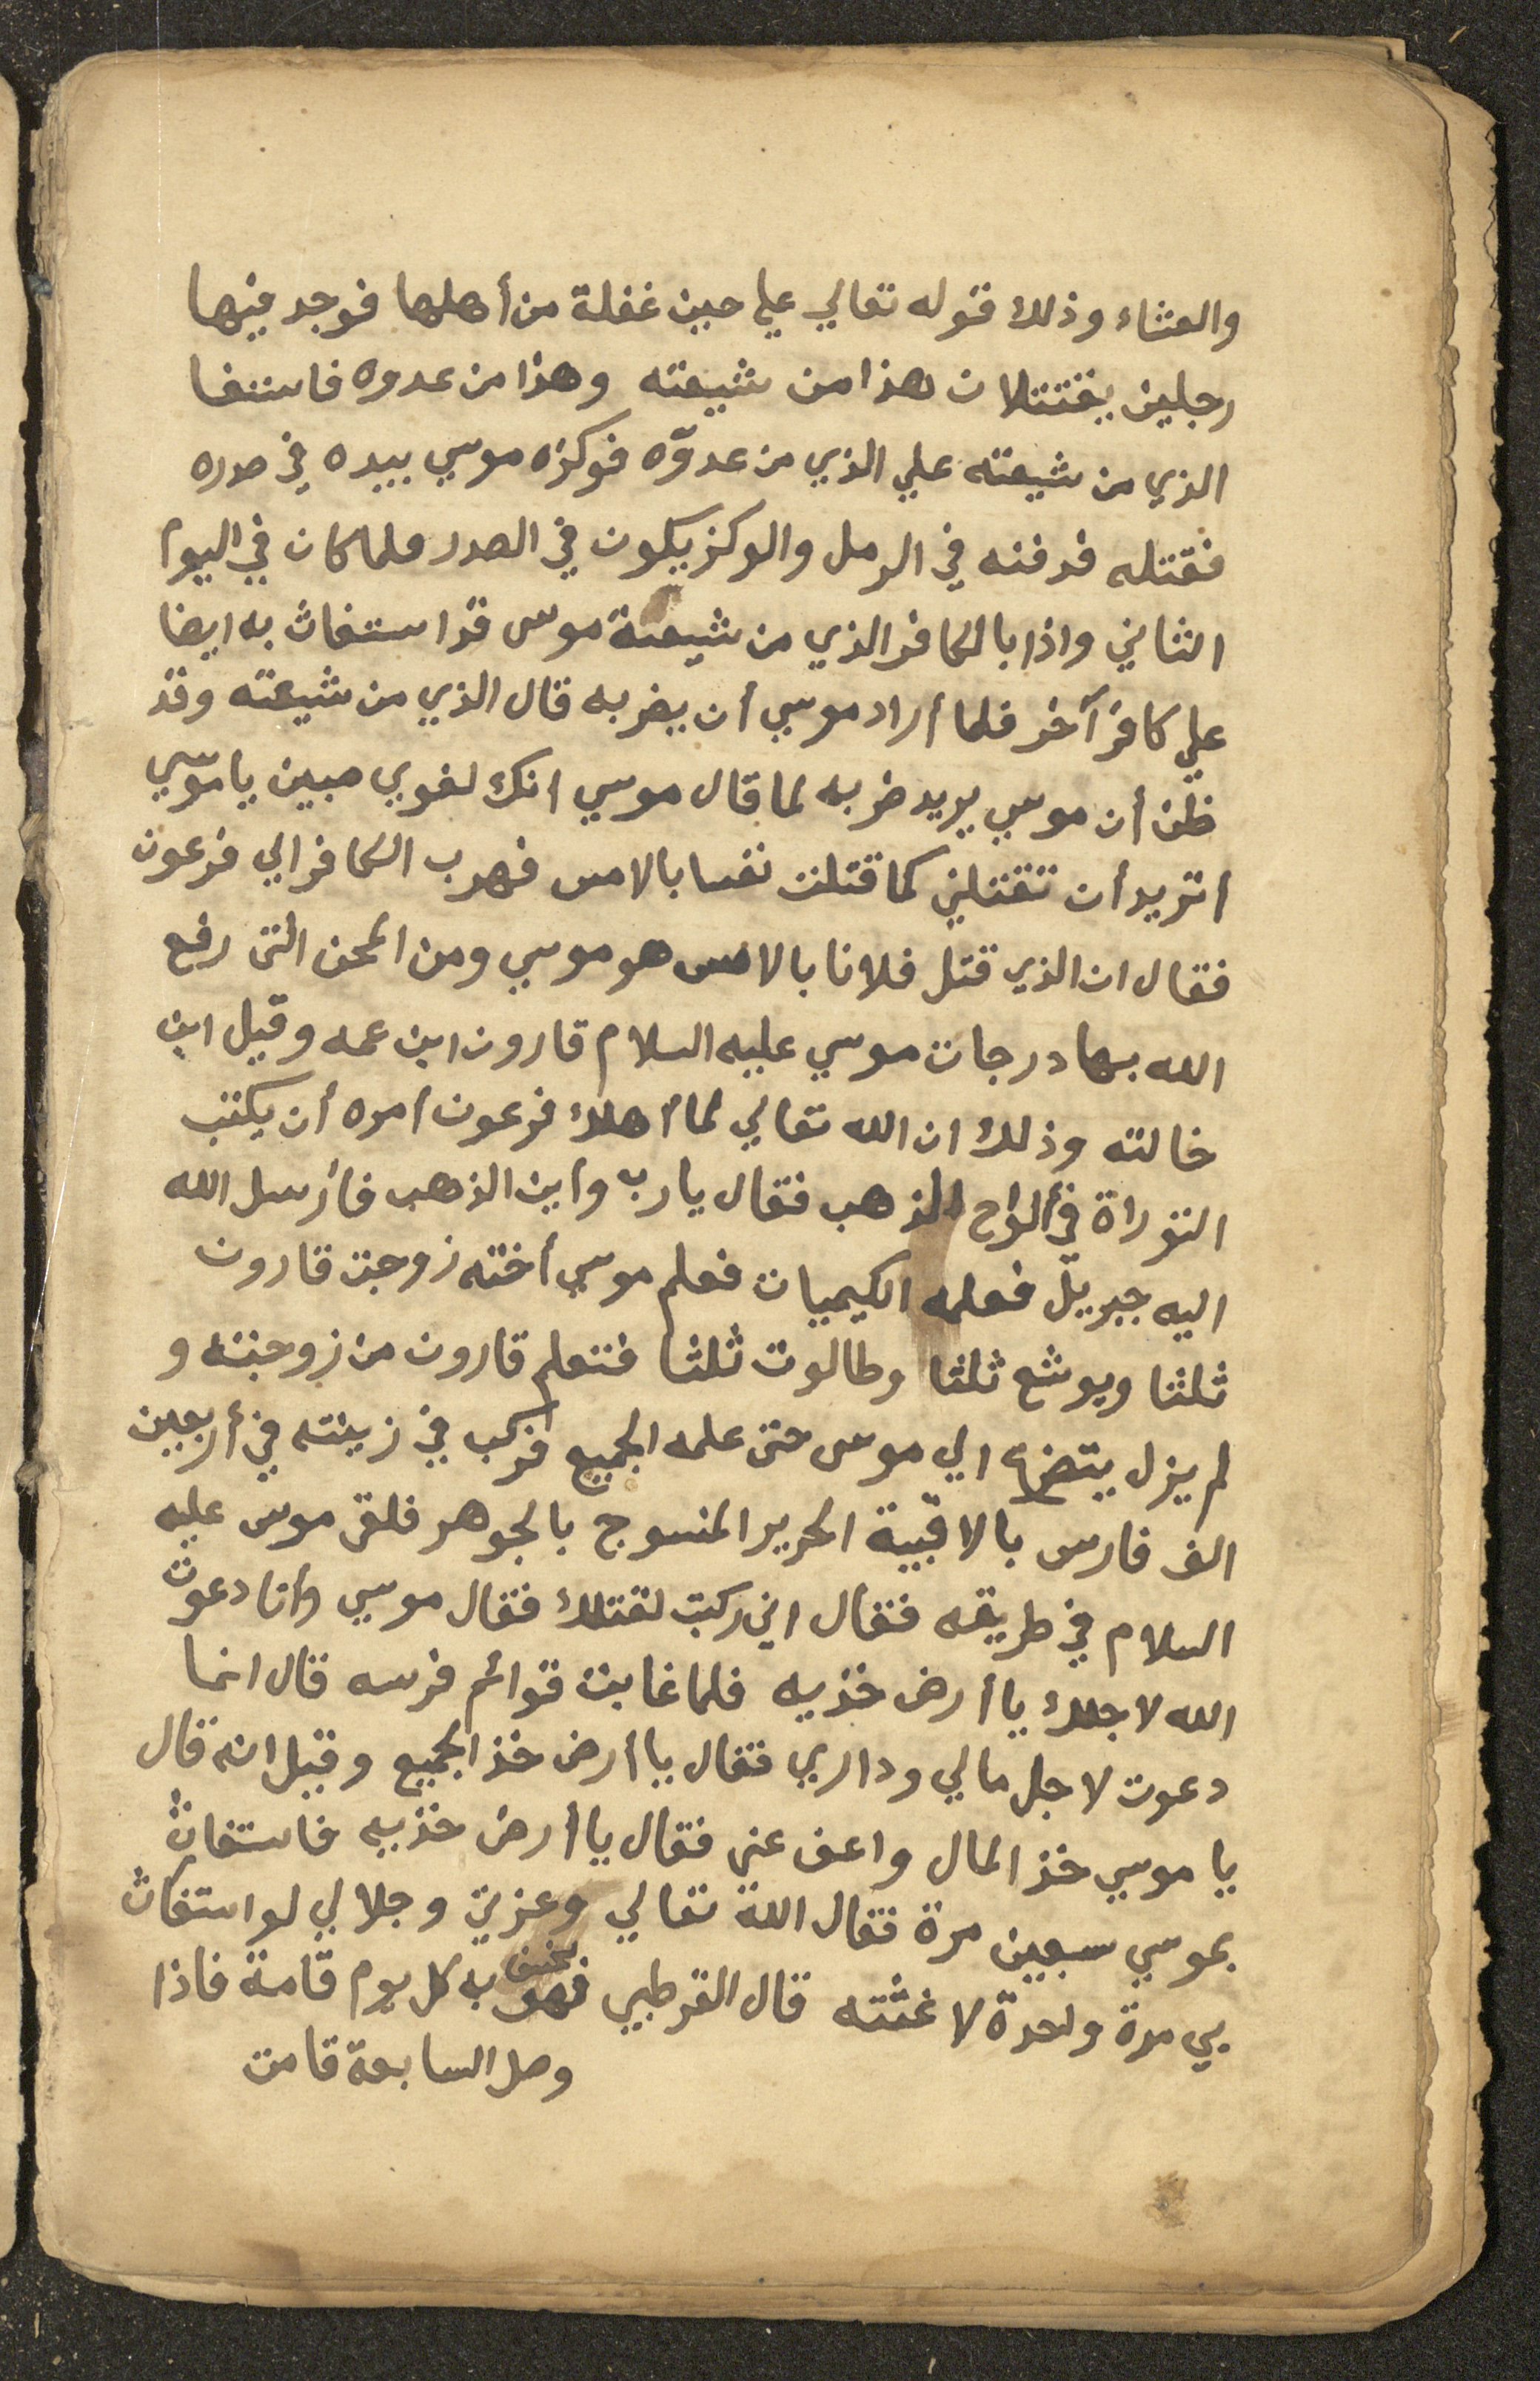 والعشاء وذلك قوله تعالي علي حين غفلة من أهلها فوجد فيها
رجلين يقتتلان هذا من شيعته وهذا من عدوه فاستغا
الذي من شيعته علي الذي من عدوّه فوكزه موسي بيده في صدره
فقتله فدفنه في الرمل والوكز يكون في الصدر فلما كان في اليوم
الثاني واذا بالكافر الذي من شيعة موسى قد استغاث به ايضا
علي كافر آخر فلما أراد موسي أن يضربه قال الذي من شيعته وقد
ظن أن موسي يريد ضربه لما قال موسي انك لغوي مبين يا موسي
اتريد أن تقتلني كما قتلت نفسا بالامس فهرب الكافر الي فرعون
فقال ان الذي قتل فلانا بالامس هو موسي ومن المحن التى رفع
الله بها درجات موسي عليه السلام قارون ابن عمه وقيل ابن
خالته وذلك ان الله تعالي لما أهلك فرعون أمره أن يكتب
التوراة في ألواح الذهب فقال يا رب وأين الذهب فأرسل الله
اليه جبريل فعلمه الكيميات فعلم موسي أخته زوجت قارون
ثلثا ويوشع ثلثا وطالوت ثلثا فتعلم قارون من زوجته و
لم يزل يتضرع الي موسى حتى علمه الجميع فركب في زينته في أربعين
الف فارس بالاقبية الحرير المنسوج بالجوهر فلقى موسى عليه
السلام في طريقه فقال اني ركبت لقتلك فقال موسي وأنا دعوت
الله لاجلك يا أرض خذيه فلما غابت قوائم فرسه قال انما
دعوت لاجل مالي وداري فقال يا أرض خذ الجميع وقيل انه قال
يا موسي خذ المال واعف عني فقال يا أرض خذيه فاستغاث
بموسي سبعين مرة فقال الله تعالي وعزتي وجلالي لو استغاث
بي مرة واحدة لاغثته قال القرطبي فهو يخسف به كل يوم قامة فاذا
وصل السابعة قامت